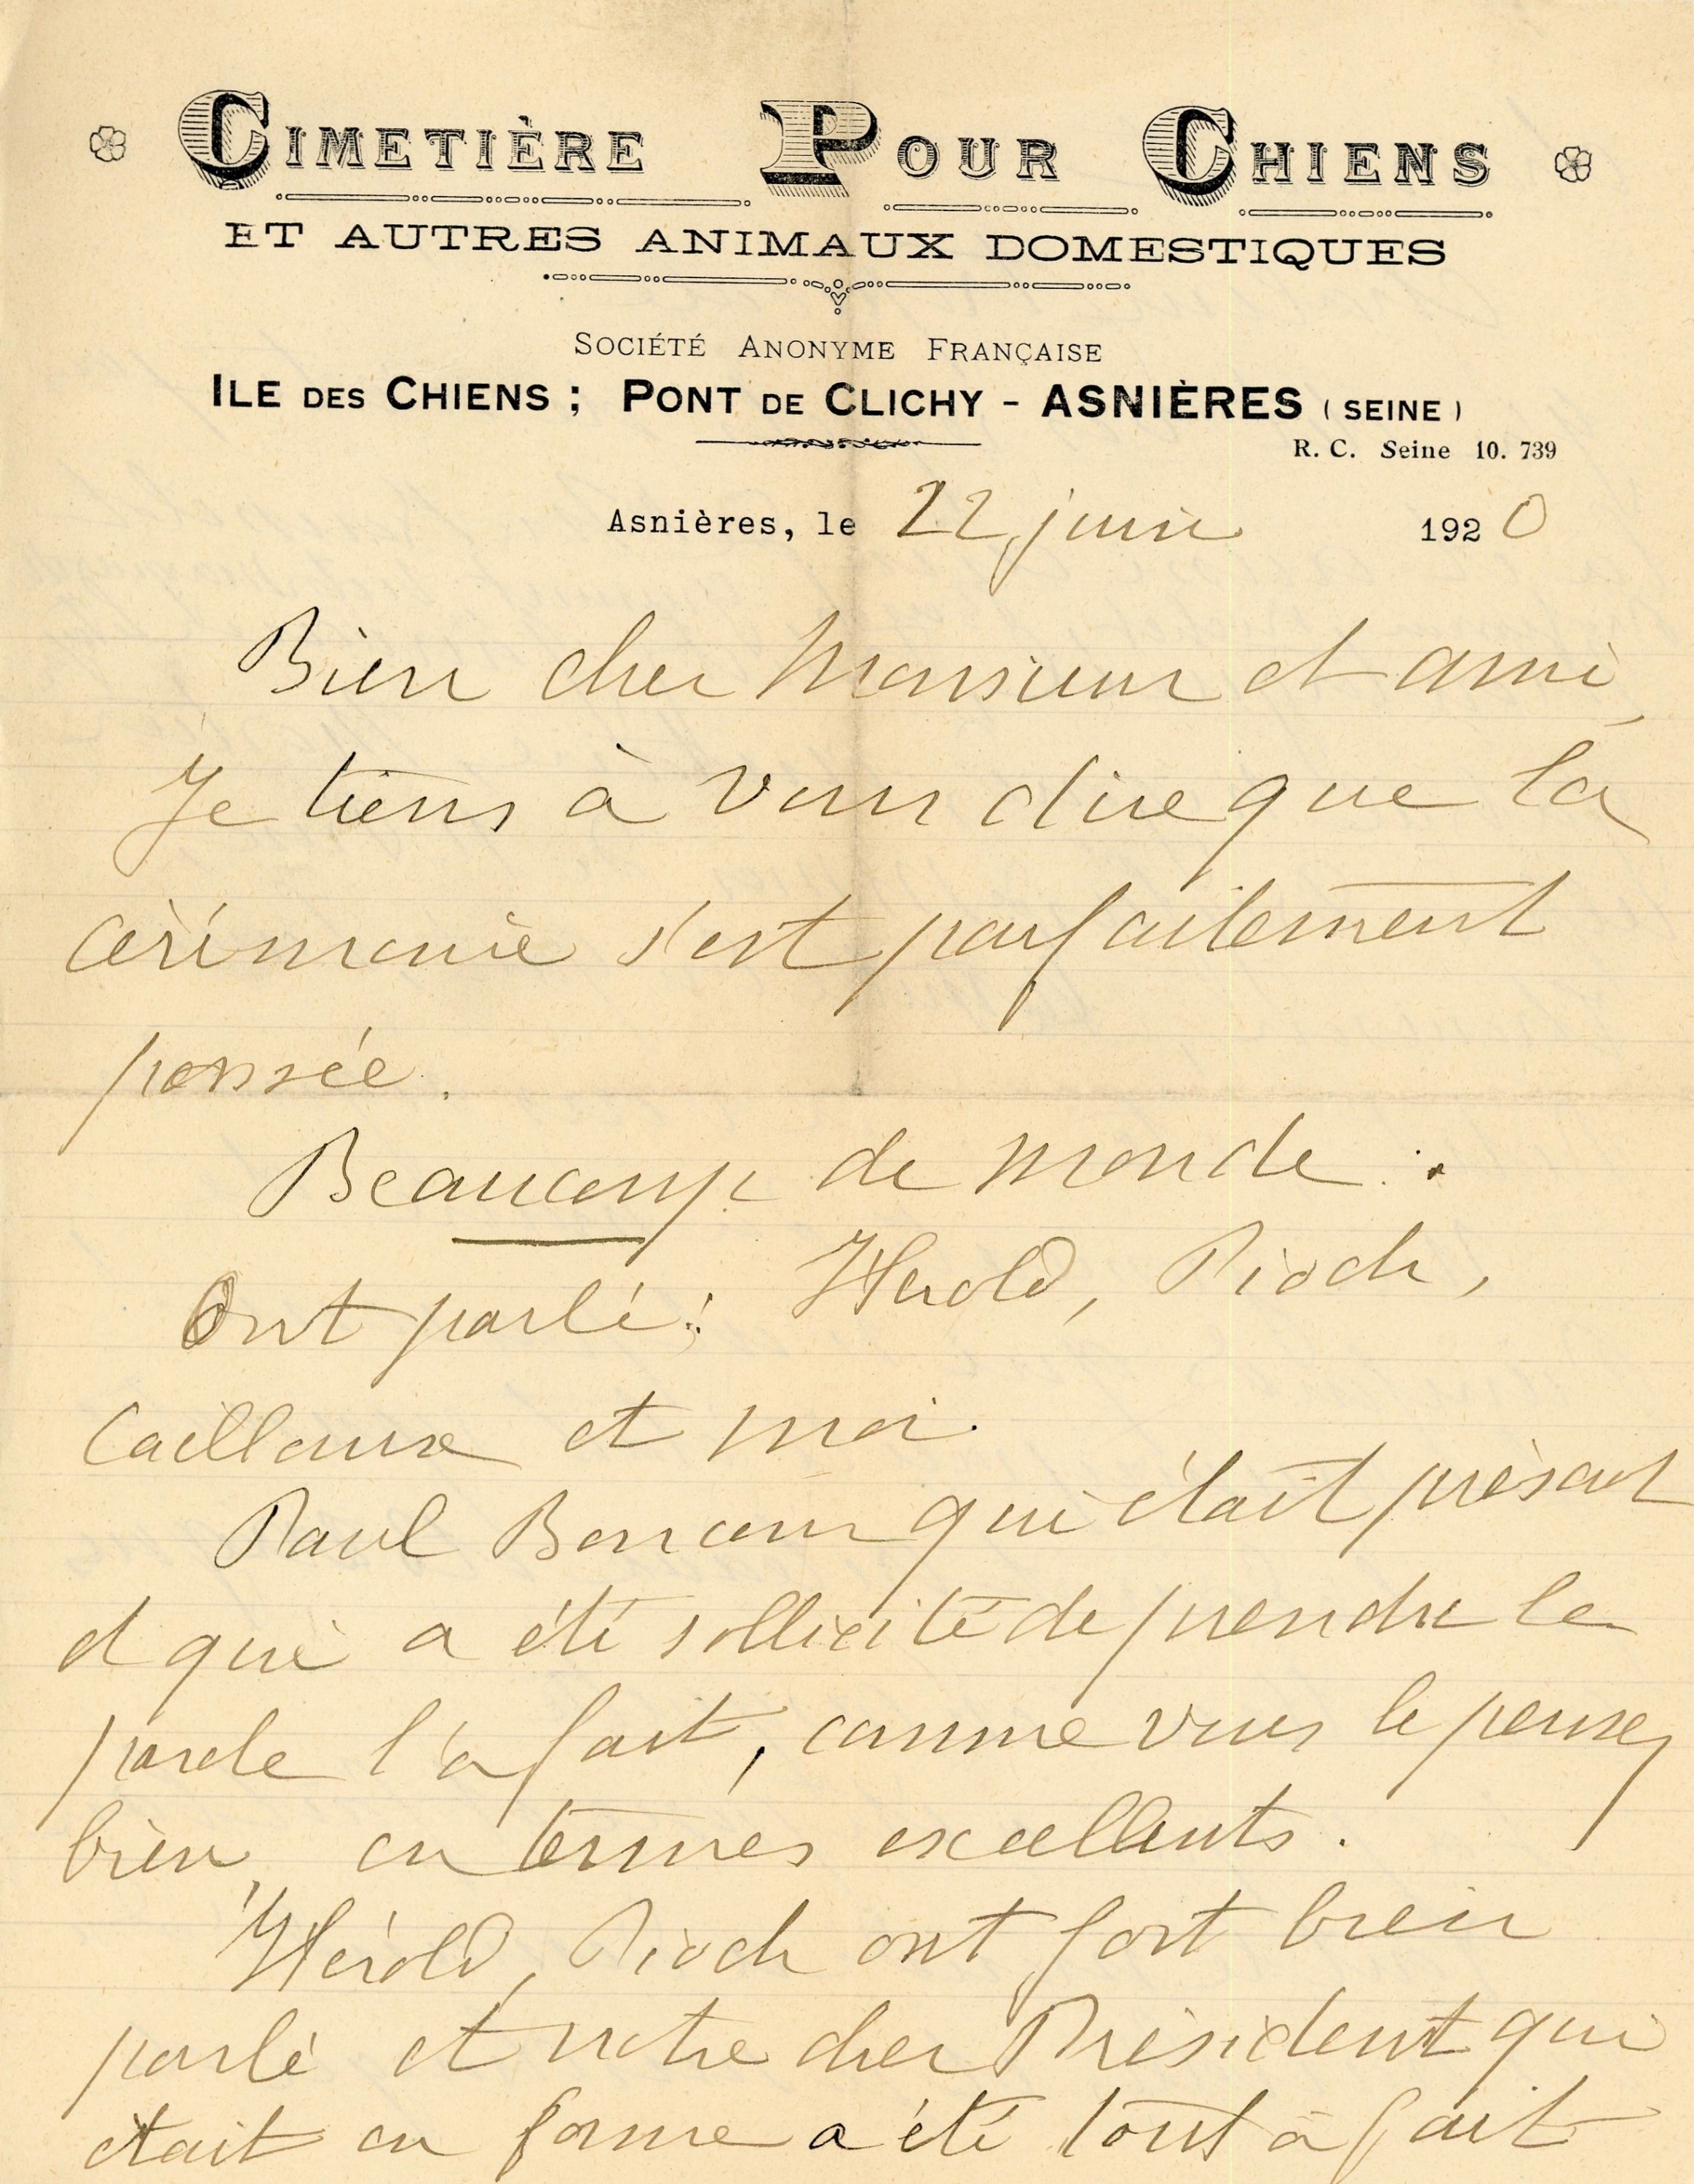 CIMETIÈRE POUR CHIENS
ET AUTRES ANIMAUX DOMESTIQUES
SOCIÉTÉ ANONYME FRANÇAISE
ILE DES CHIENS ; PONT DE CLICHY - ASNIÈRES ( SEINE )
R. C. Seine 10. 739
Asnières, le 22 juin 1920
Bien cher Monsieur et ami,
Je tiens à vous dire que la
cérémonie s'est parfaitement
passée.
Beaucoup de monde :
Ont parlé : Herold, Pioch,
Caillaux et moi.
Paul Boncour qui était présent
et qui a été sollicité de prendre la
parole l'a fait, comme vous le pensez
bien, en termes excellents.
Hérold, Pioch ont fort bien
parlé et notre cher Président qui
était en forme a été tout à fait